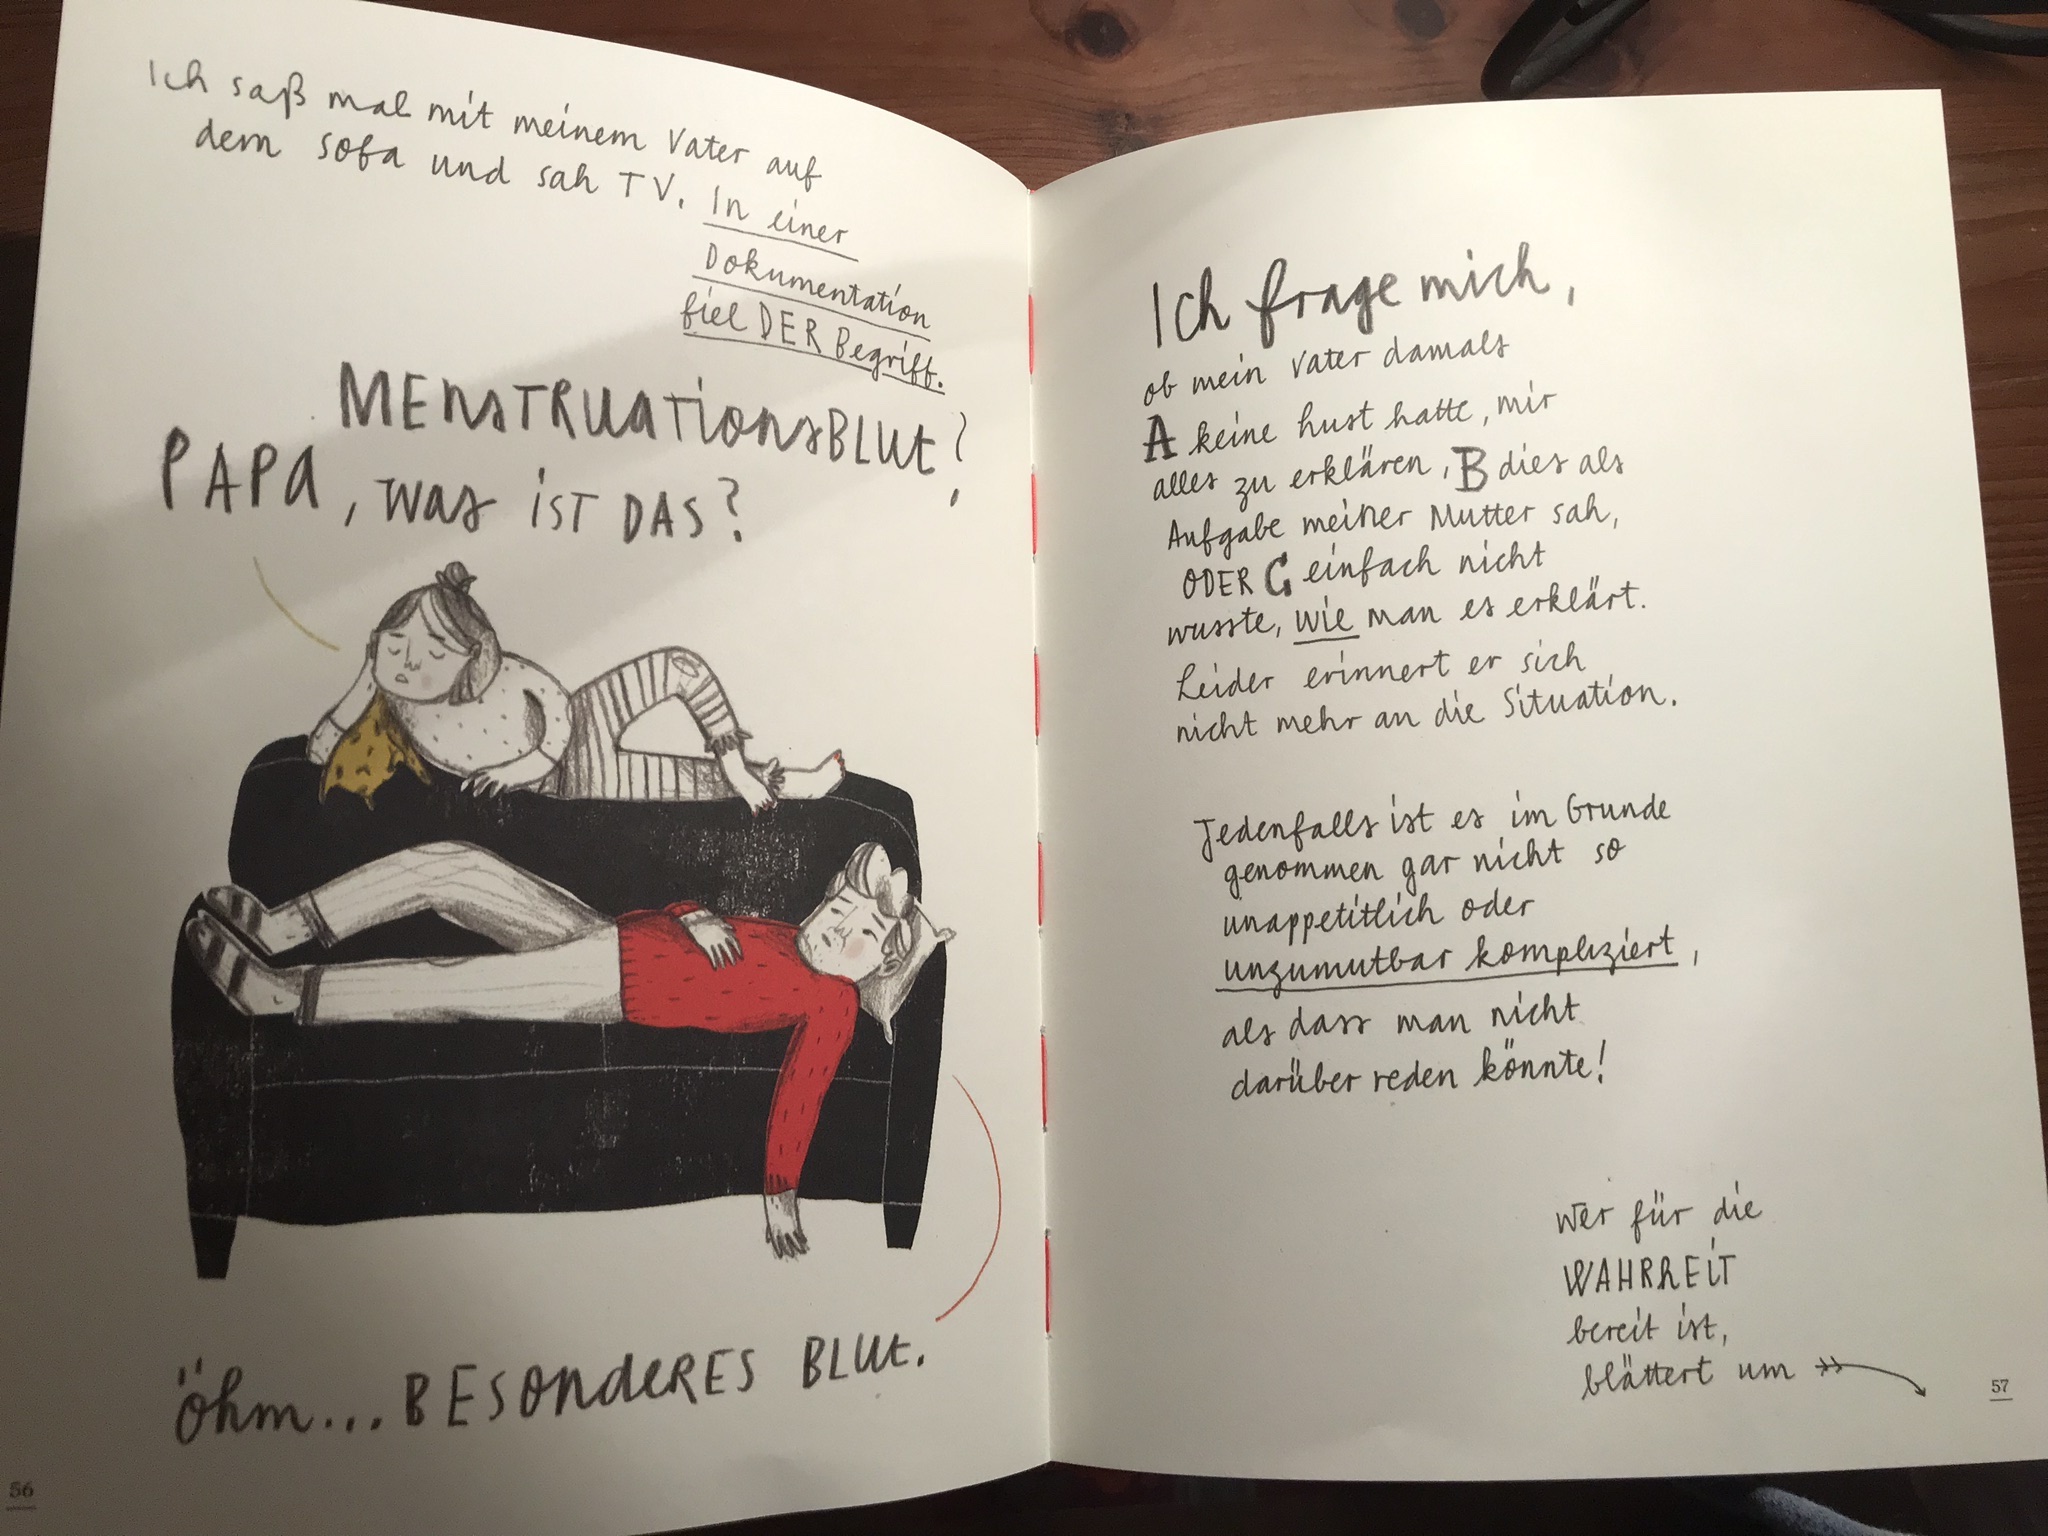 Ich saß mal mit meinem Vater auf
dem Sofa und sah TV. In einer
Dokumentation
fiel DER Begriff.
MENSTRUATIONSBLUT?
PAPA, WAS IST DAS?
öhm... BESONDERES BLUT.
56
Ich frage mich,
ob mein Vater damals
A keine Lust hatte, mir
alles zu erklären, B dies als
Aufgabe meiner Mutter sah,
ODER C einfach nicht
wusste, wie man es erklärt.
Leider erinnert er sich
nicht mehr an die Situation.
Jedenfalls ist es im Grunde
genommen gar nicht so
unappetitlich oder
unzumutbar kompliziert,
als dass man nicht
darüber reden könnte!
Wer für die
WAHRHEIT
bereit ist,
blättert um
57